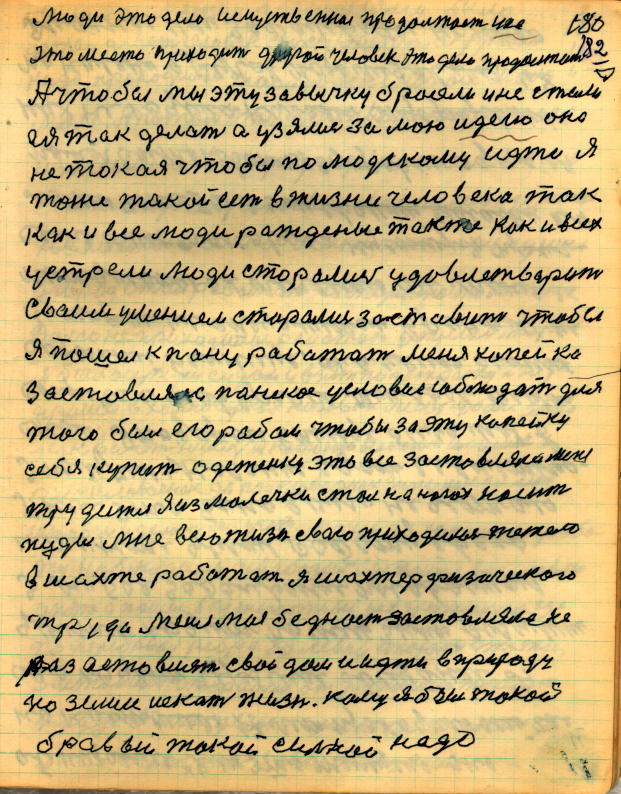 люди это дело искуственна продолжает на 180
это место приходит другой человек это дело продолжает 182
А чтобы мы эту завычку бросили и не стали
ея так делат а узялис за мою идею она
не токая чтобы по людскому идти я
тоже такой сет в жизни человека так
как и все люди рожденые также как и всех
устрели люди сторалис удовлетварит
своим умением сторалис заставит чтобы
я пошел к пану работат меня копейка
застовляла панское условие соблюдат для
того был его рабом чтобы за эту копейку
себя купит одеженку это все застовляла мене
трудится я измалечки стал на ногах носит
пуды мне всю жизн сваю приходилос тежело
в шахте работат я шахтер физического
труда меня моя бедност застовляла не
раз аставлят свой дом и идти в природу
по земле искат жизн. кому я был такой
бравый такой силной надо